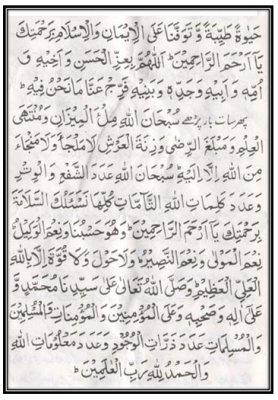 حَيٰوةً طَيِّبَةً وَّ تَوَفَّنَا عَلَى الْاِيْمَانِ وَالْاِسْلَامِ بِرَحْمَتِكَ
يَآ اَرْحَمَ الرَّاحِمِيْنَ ؕ اَللّٰهُمَّ بِعِزِّ الْحَسَنِ وَ اَخِيْهِ وَ
اُمِّهٖ وَ اَبِيْهِ وَجَدِّهٖ وَ بَنِيْهِ فَرِّجْ عَنَّا مَا نَحْنُ فِيْهِ ؕ
پھر سات بار پڑھے سُبْحَانَ اللّٰهِ مِلْءَ الْمِيْزَانِ وَمُنْتَهَى
الْعِلْمِ وَمَبْلَغَ الرِّضٰى وَزِنَةَ الْعَرْشِ لَا مَلْجَأَ وَلَا مَنْجَاءَ
مِنَ اللّٰهِ اِلَّا اِلَيْهِ ؕ سُبْحَانَ اللّٰهِ عَدَدَ الشَّفْعِ وَ الْوِتْرِ
وَعَدَدَ كَلِمَاتِ اللّٰهِ التَّآمَّاتِ كُلِّهَا نَسْئَلُكَ السَّلَامَةَ
بِرَحْمَتِكَ يَآ اَرْحَمَ الرَّاحِمِيْنَ ؕ وَهُوَ حَسْبُنَا وَنِعْمَ الْوَكِيْلُ
نِعْمَ الْمَوْلٰى وَنِعْمَ النَّصِيْرُ ؕ وَلَا حَوْلَ وَلَا قُوَّةَ اِلَّا بِاللّٰهِ
الْعَلِيِّ الْعَظِيْمِ ؕ وَصَلَّى اللّٰهُ تَعَالٰى عَلٰى سَيِّدِنَا مُحَمَّدٍ وَّ
عَلٰى اٰلِهٖ وَ صَحْبِهٖ وَعَلَى الْمُؤْمِنِيْنَ وَ الْمُؤْمِنَاتِ وَ الْمُسْلِمِيْنَ
وَالْمُسْلِمَاتِ عَدَدَ ذَرَّاتِ الْوُجُوْدِ وَ عَدَدَ مَعْلُوْمَاتِ اللّٰهِ
وَ الْحَمْدُ لِلّٰهِ رَبِّ الْعٰلَمِيْنَ ؕ